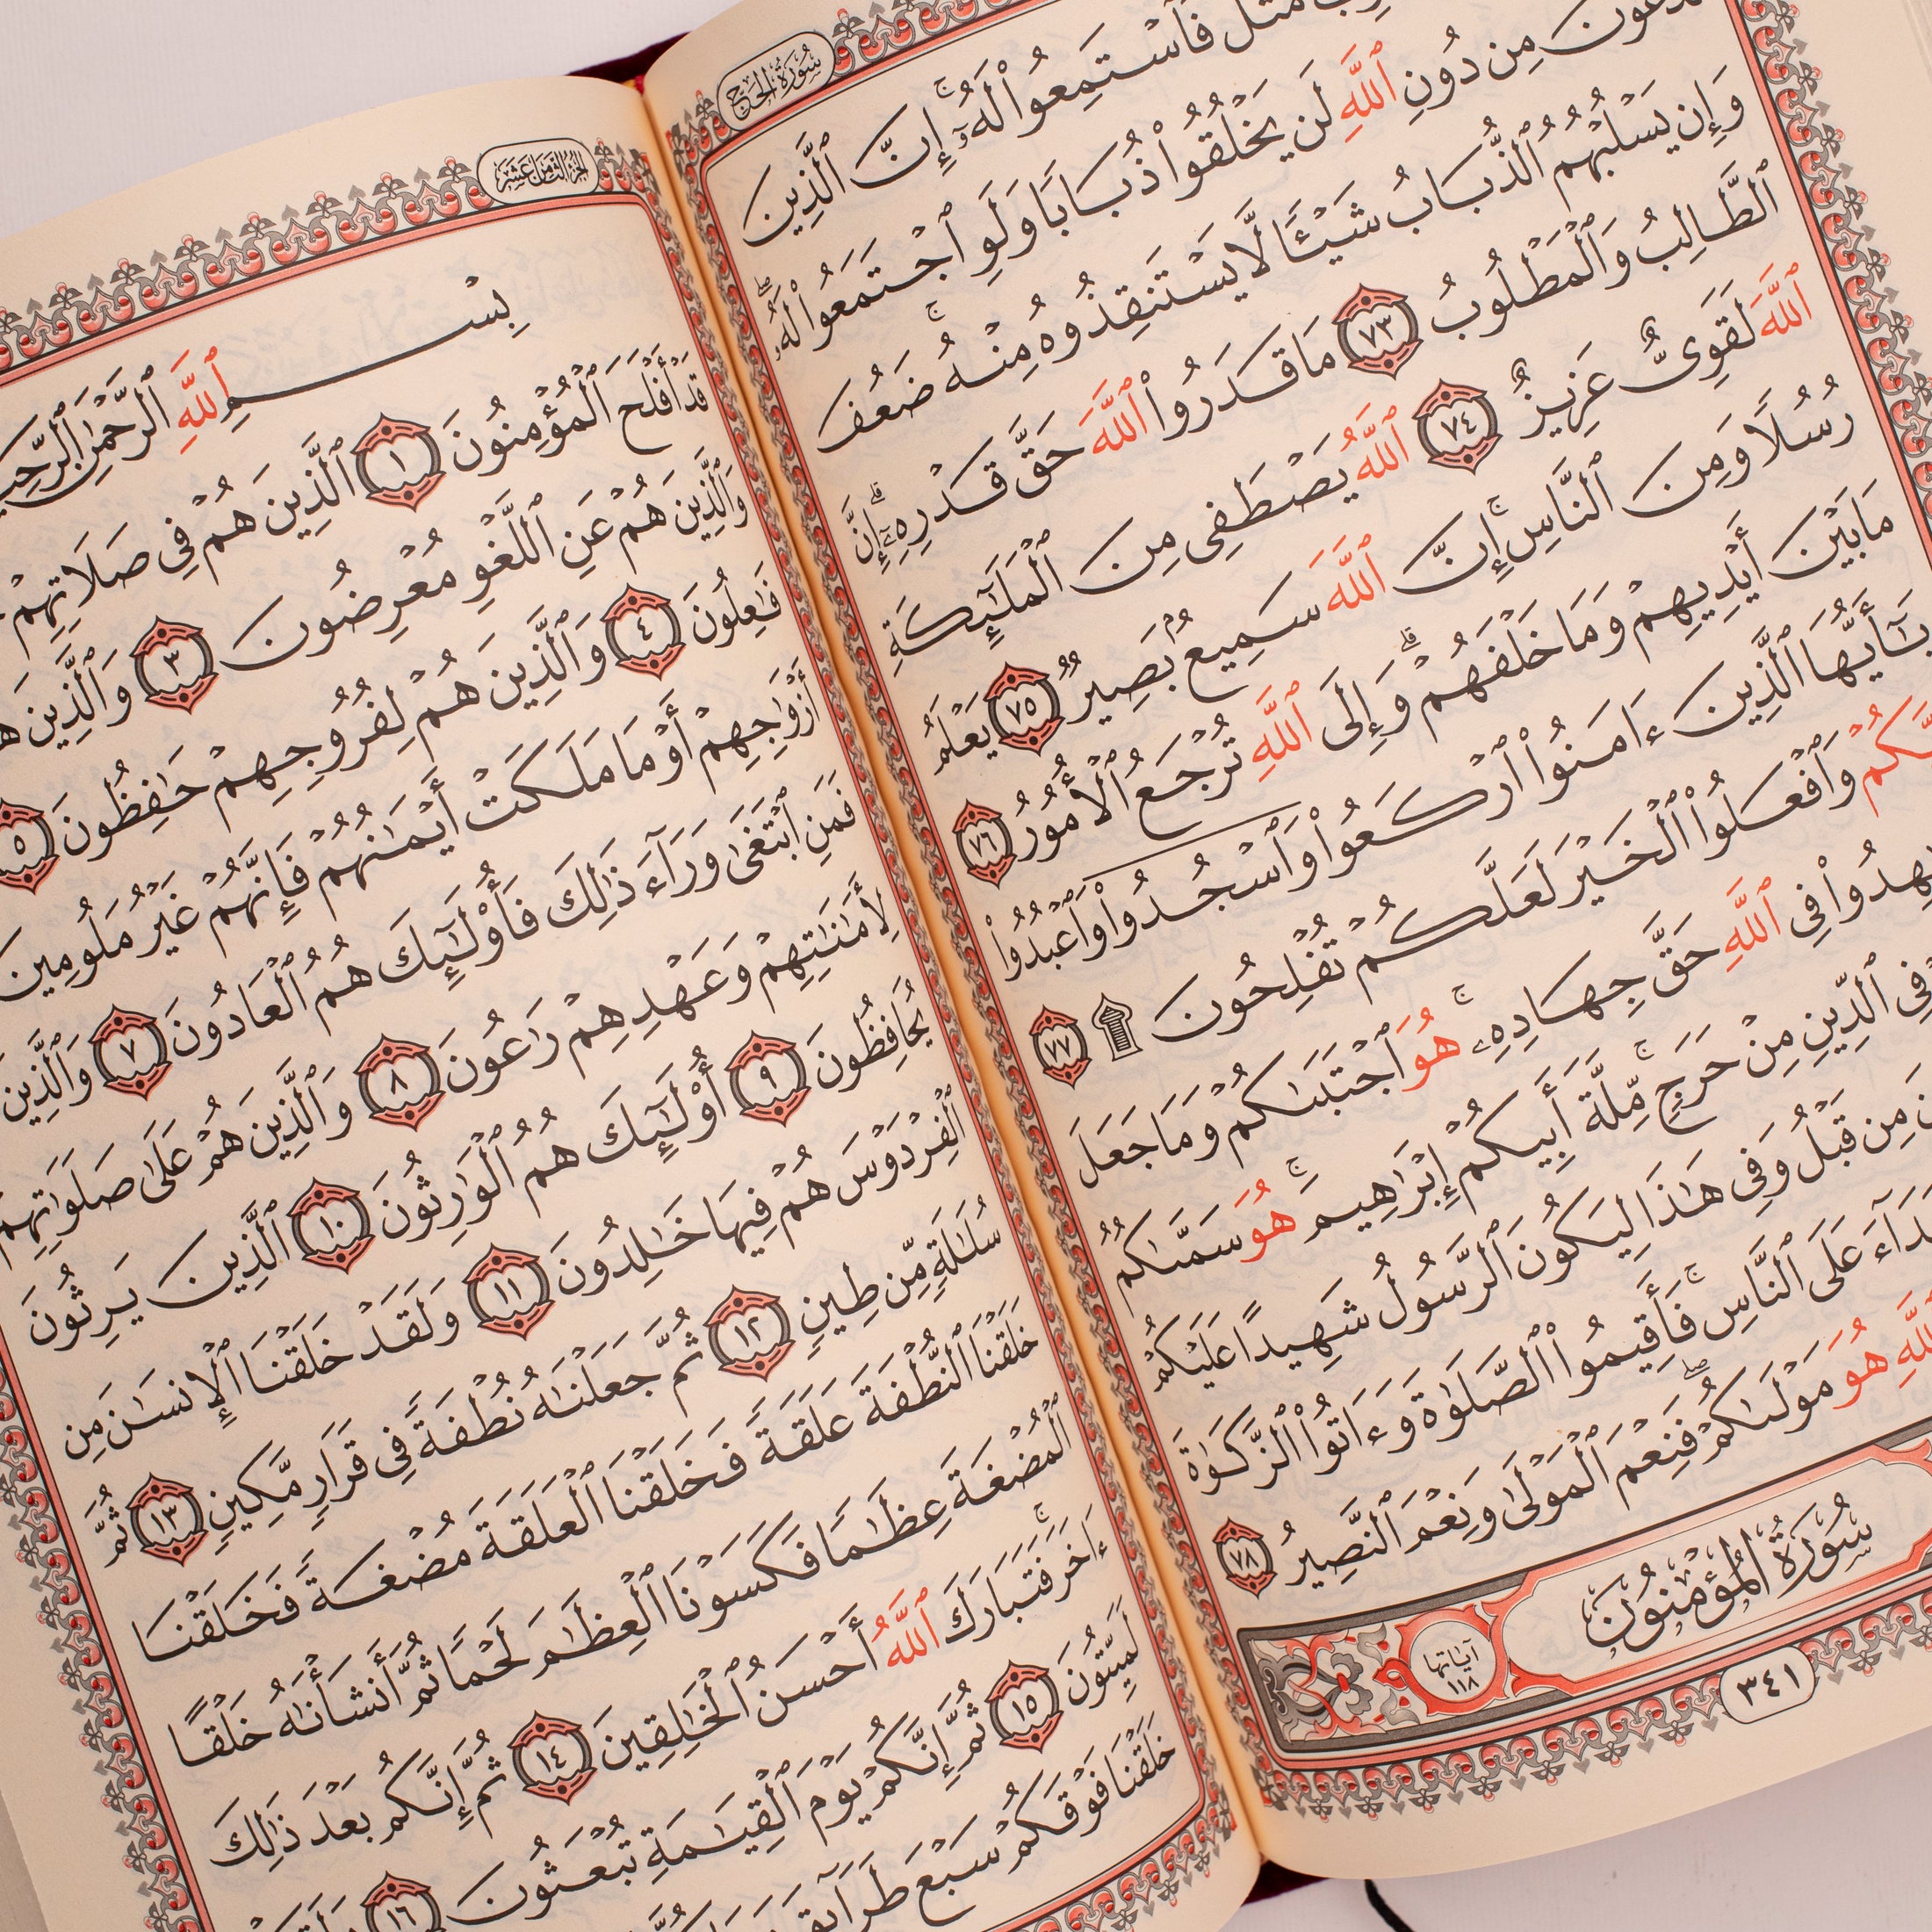 سُورَةُ الحَجّ
مَثَلٌ فَٱسْتَمِعُوا۟ لَهُۥٓ ۚ إِنَّ ٱلَّذِينَ
تَدْعُونَ مِن دُونِ ٱللَّهِ لَن يَخْلُقُوا۟ ذُبَابًا وَلَوِ ٱجْتَمَعُوا۟ لَهُۥ ۖ
وَإِن يَسْلُبْهُمُ ٱلذُّبَابُ شَيْـًٔا لَّا يَسْتَنقِذُوهُ مِنْهُ ۚ ضَعُفَ
ٱلطَّالِبُ وَٱلْمَطْلُوبُ ٧٣ مَا قَدَرُوا۟ ٱللَّهَ حَقَّ قَدْرِهِۦٓ ۗ إِنَّ
ٱللَّهَ لَقَوِىٌّ عَزِيزٌ ٧٤ ٱللَّهُ يَصْطَفِى مِنَ ٱلْمَلَـٰٓئِكَةِ
رُسُلًا وَمِنَ ٱلنَّاسِ ۚ إِنَّ ٱللَّهَ سَمِيعٌۢ بَصِيرٌ ٧٥ يَعْلَمُ
مَا بَيْنَ أَيْدِيهِمْ وَمَا خَلْفَهُمْ ۗ وَإِلَى ٱللَّهِ تُرْجَعُ ٱلْأُمُورُ ٧٦
يَـٰٓأَيُّهَا ٱلَّذِينَ ءَامَنُوا۟ ٱرْكَعُوا۟ وَٱسْجُدُوا۟ وَٱعْبُدُوا۟
وَٱفْعَلُوا۟ ٱلْخَيْرَ لَعَلَّكُمْ تُفْلِحُونَ ۩ ٧٧
فِى ٱللَّهِ حَقَّ جِهَادِهِۦ ۚ هُوَ ٱجْتَبَىٰكُمْ وَمَا جَعَلَ
فِى ٱلدِّينِ مِنْ حَرَجٍ ۚ مِّلَّةَ أَبِيكُمْ إِبْرَٰهِيمَ ۚ هُوَ سَمَّىٰكُمُ
مِن قَبْلُ وَفِى هَـٰذَا لِيَكُونَ ٱلرَّسُولُ شَهِيدًا عَلَيْكُمْ
عَلَى ٱلنَّاسِ ۚ فَأَقِيمُوا۟ ٱلصَّلَوٰةَ وَءَاتُوا۟ ٱلزَّكَوٰةَ
هُوَ مَوْلَىٰكُمْ ۖ فَنِعْمَ ٱلْمَوْلَىٰ وَنِعْمَ ٱلنَّصِيرُ ٧٨
سُورَةُ المُؤْمِنُونَ
آياتها
١١٨
٣٤١
الجزء الثامن عشر
بِسْمِ ٱللَّهِ ٱلرَّحْمَـٰنِ ٱلرَّحِيمِ
قَدْ أَفْلَحَ ٱلْمُؤْمِنُونَ ١ ٱلَّذِينَ هُمْ فِى صَلَاتِهِمْ
وَٱلَّذِينَ هُمْ عَنِ ٱللَّغْوِ مُعْرِضُونَ ٣ وَٱلَّذِينَ
فَـٰعِلُونَ ٤ وَٱلَّذِينَ هُمْ لِفُرُوجِهِمْ حَـٰفِظُونَ ٥
أَزْوَٰجِهِمْ أَوْ مَا مَلَكَتْ أَيْمَـٰنُهُمْ فَإِنَّهُمْ غَيْرُ مَلُومِينَ
فَمَنِ ٱبْتَغَىٰ وَرَآءَ ذَٰلِكَ فَأُو۟لَـٰٓئِكَ هُمُ ٱلْعَادُونَ ٧ وَٱلَّذِينَ
لِأَمَـٰنَـٰتِهِمْ وَعَهْدِهِمْ رَٰعُونَ ٨ وَٱلَّذِينَ هُمْ عَلَىٰ صَلَوَٰتِهِمْ
يُحَافِظُونَ ٩ أُو۟لَـٰٓئِكَ هُمُ ٱلْوَٰرِثُونَ ١٠ ٱلَّذِينَ يَرِثُونَ
ٱلْفِرْدَوْسَ هُمْ فِيهَا خَـٰلِدُونَ ١١ وَلَقَدْ خَلَقْنَا ٱلْإِنسَـٰنَ مِن
سُلَـٰلَةٍ مِّن طِينٍ ١٢ ثُمَّ جَعَلْنَـٰهُ نُطْفَةً فِى قَرَارٍ مَّكِينٍ ١٣ ثُمَّ
خَلَقْنَا ٱلنُّطْفَةَ عَلَقَةً فَخَلَقْنَا ٱلْعَلَقَةَ مُضْغَةً فَخَلَقْنَا
ٱلْمُضْغَةَ عِظَـٰمًا فَكَسَوْنَا ٱلْعِظَـٰمَ لَحْمًا ثُمَّ أَنشَأْنَـٰهُ خَلْقًا
ءَاخَرَ ۚ فَتَبَارَكَ ٱللَّهُ أَحْسَنُ ٱلْخَـٰلِقِينَ ١٤ ثُمَّ إِنَّكُم بَعْدَ ذَٰلِكَ
لَمَيِّتُونَ ١٥ ثُمَّ إِنَّكُمْ يَوْمَ ٱلْقِيَـٰمَةِ تُبْعَثُونَ ١٦
خَلَقْنَا فَوْقَكُمْ سَبْعَ طَرَآئِقَ